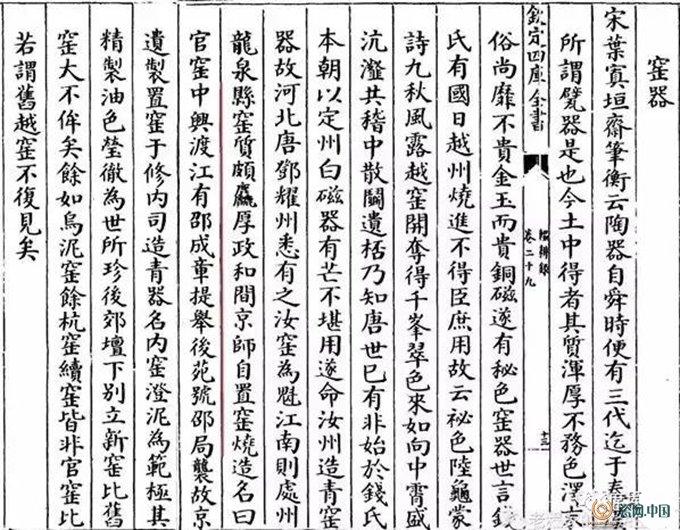 窑器
宋葉寘垣齋筆衡云陶器自舜時便有三代迄于秦
所謂甓器是也今土中得者其質渾厚不務色澤
欽定四庫全書
輟耕録
卷二十九
十三
俗尚靡不貴金玉而貴銅磁遂有秘色窑器世言錢
氏有國日越州燒進不得臣庶用故云祕色陸龜蒙
詩九秋風露越窑開奪得千峯翠色來如向中霄盛
沆瀣共嵇中散鬭遺桮乃知唐世已有非始於錢氏
本朝以定州白磁器有芒不堪用遂命汝州造青窑
器故河北唐鄧耀州悉有之汝窑為魁江南則處州
龍泉縣窑質頗麤厚政和間京師自置窑燒造名曰
官窑中興渡江有邵成章提舉後苑號邵局襲故京
遺製置窑于修内司造青器名内窑澄泥為範極其
精製油色瑩徹為世所珍後郊壇下别立新窑比舊
窑大不侔矣餘如烏泥窑餘杭窑續窑皆非官窑比
若謂舊越窑不復見矣
瓷网.中国